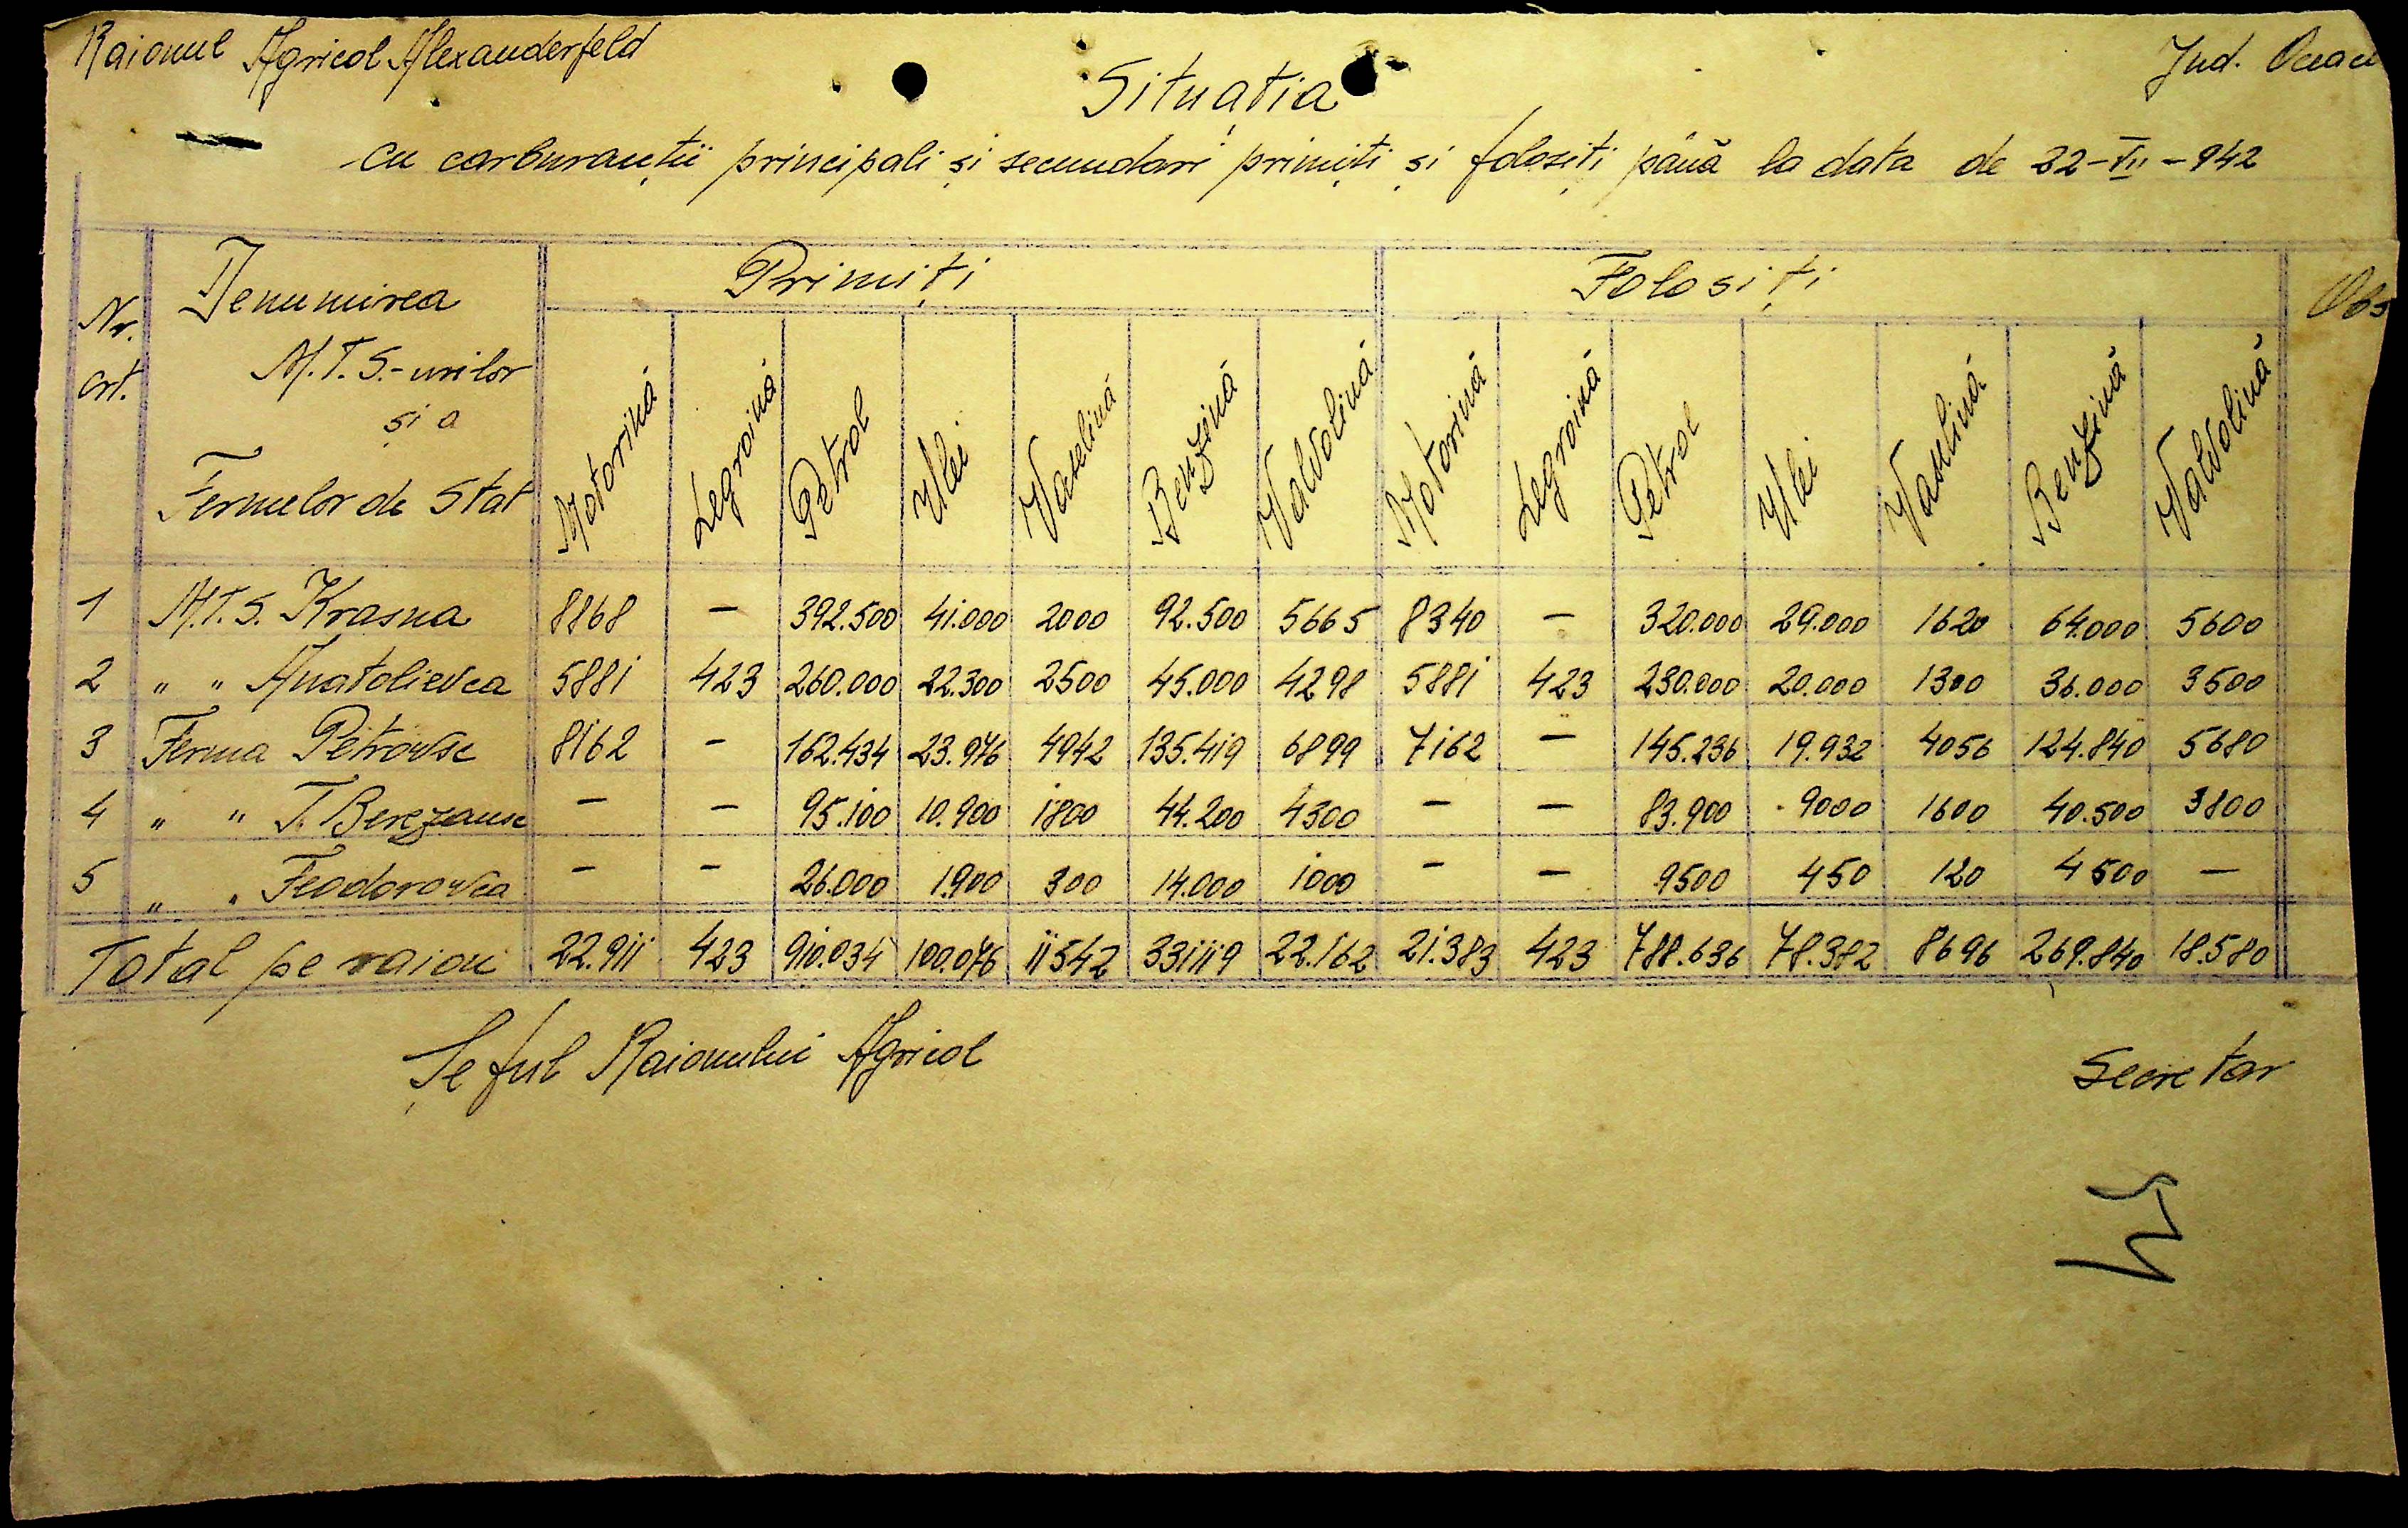 Raionul Agricol Alexanderfeld
Jud. Oceac
Situația
cu carburanții principali și secundari primiți și folosiți până la data de 22-VII-942
Nr. crt. Denumirea M.T.S.-urilor și a Fermelor de Stat Primiți Folosiți Obs
Motorină Legroină Petrol Ulei Vaselină Benzină Valvolină Motorină Legroină Petrol Ulei Vaselină Benzină Valvolină
1 M.T.S. Krasna 8868 — 392.500 41.000 2000 92.500 5665 8340 — 320.000 29.000 1620 64.000 5600
2 " " Anatolievca 5881 423 260.000 22.300 2500 45.000 4298 5881 423 230.000 20.000 1300 36.000 3500
3 Ferma Petrovsc 8162 - 162.434 23.976 4942 135.419 6899 7162 — 145.236 19.932 4056 124.840 5680
4 " " T. Berezansc — — 95.100 10.900 1800 44.200 4300 — — 83.900 9000 1600 40.500 3800
5 " " Feodorovca — — 26.000 1.900 300 14.000 1000 — — 9500 450 120 4500 —
Total pe raion 22.911 423 910.034 100.076 11542 331119 22.162 21.383 423 788.636 78.382 8696 269.840 18.580
Șeful Raionului Agricol
Secretar